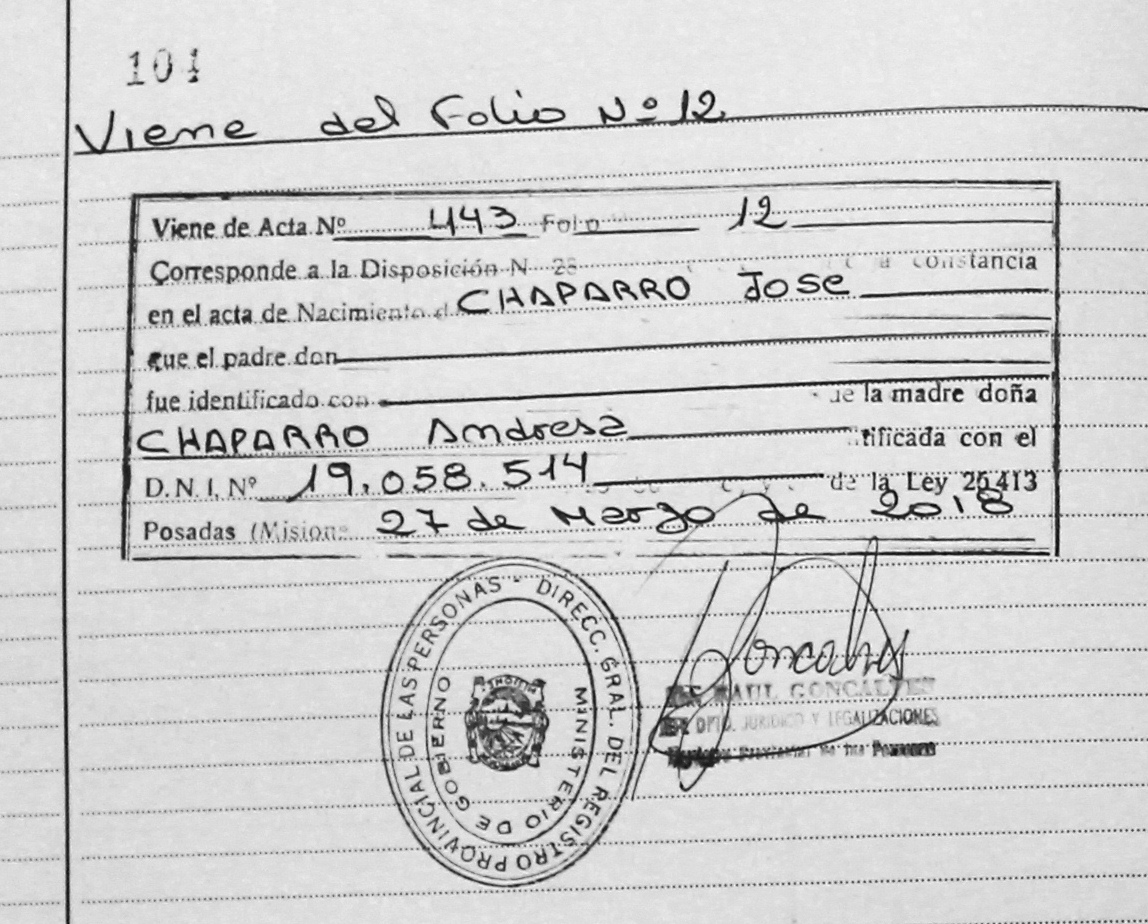 104
Viene del Folio Nº 12
Viene de Acta Nº 443 Folio 12
Corresponde a la Disposición N 28 constancia
en el acta de Nacimiento d CHAPARRO Jose
que el padre don
fue identificado con la madre doña
CHAPARRO Andresa tificada con el
D.N.I. Nº 19.058.514 de la Ley 26413
Posadas (Misione 27 de Marzo de 2018
DIRECC. GRAL. DEL REGISTRO PROVINCIAL DE LAS PERSONAS -
MINISTERIO DE GOBIERNO
Goncalves
RAUL GONCALVES
DPTO. JURIDICO Y LEGALIZACIONES
Provincial de las Personas